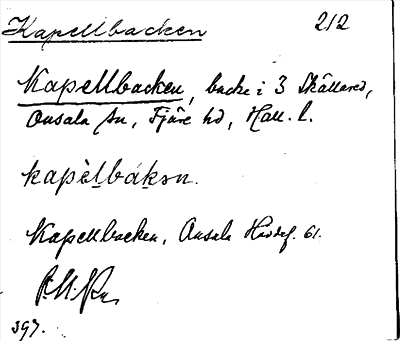 Kapellbacken 212
Kapellbacken, backe i 3 Skällared,
Onsala sn, Fjäre hd, Hall. l.
kapèlbákən.
Kapellbacken, Onsala
397.